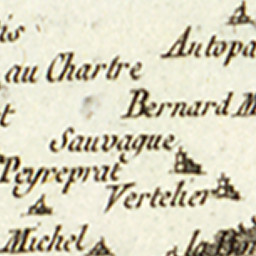 is
Autopa
au Chartre
t
Bernard M
Sauvague
Peyreprat
Vertelier
Michel
la Bor